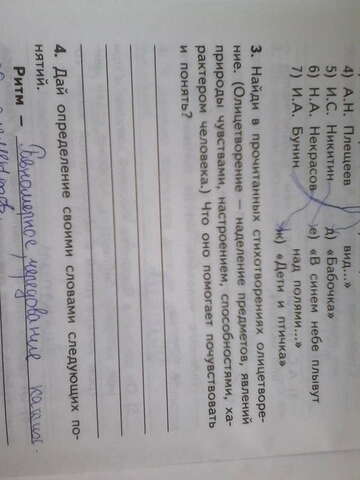 4) А.Н. Плещеев
вид...»
5) И.С. Никитин
д) «Бабочка»
6) Н.А. Некрасов
е) «В синем небе плывут
над полями...»
7) И.А. Бунин
ж) «Дети и птичка»
3. Найди в прочитанных стихотворениях олицетворе-
ние. (Олицетворение — наделение предметов, явлений
природы чувствами, настроением, способностями, ха-
рактером человека.) Что оно помогает почувствовать
и понять?
4. Дай определение своими словами следующих по-
нятий.
Ритм — Равномерное чередование каких-